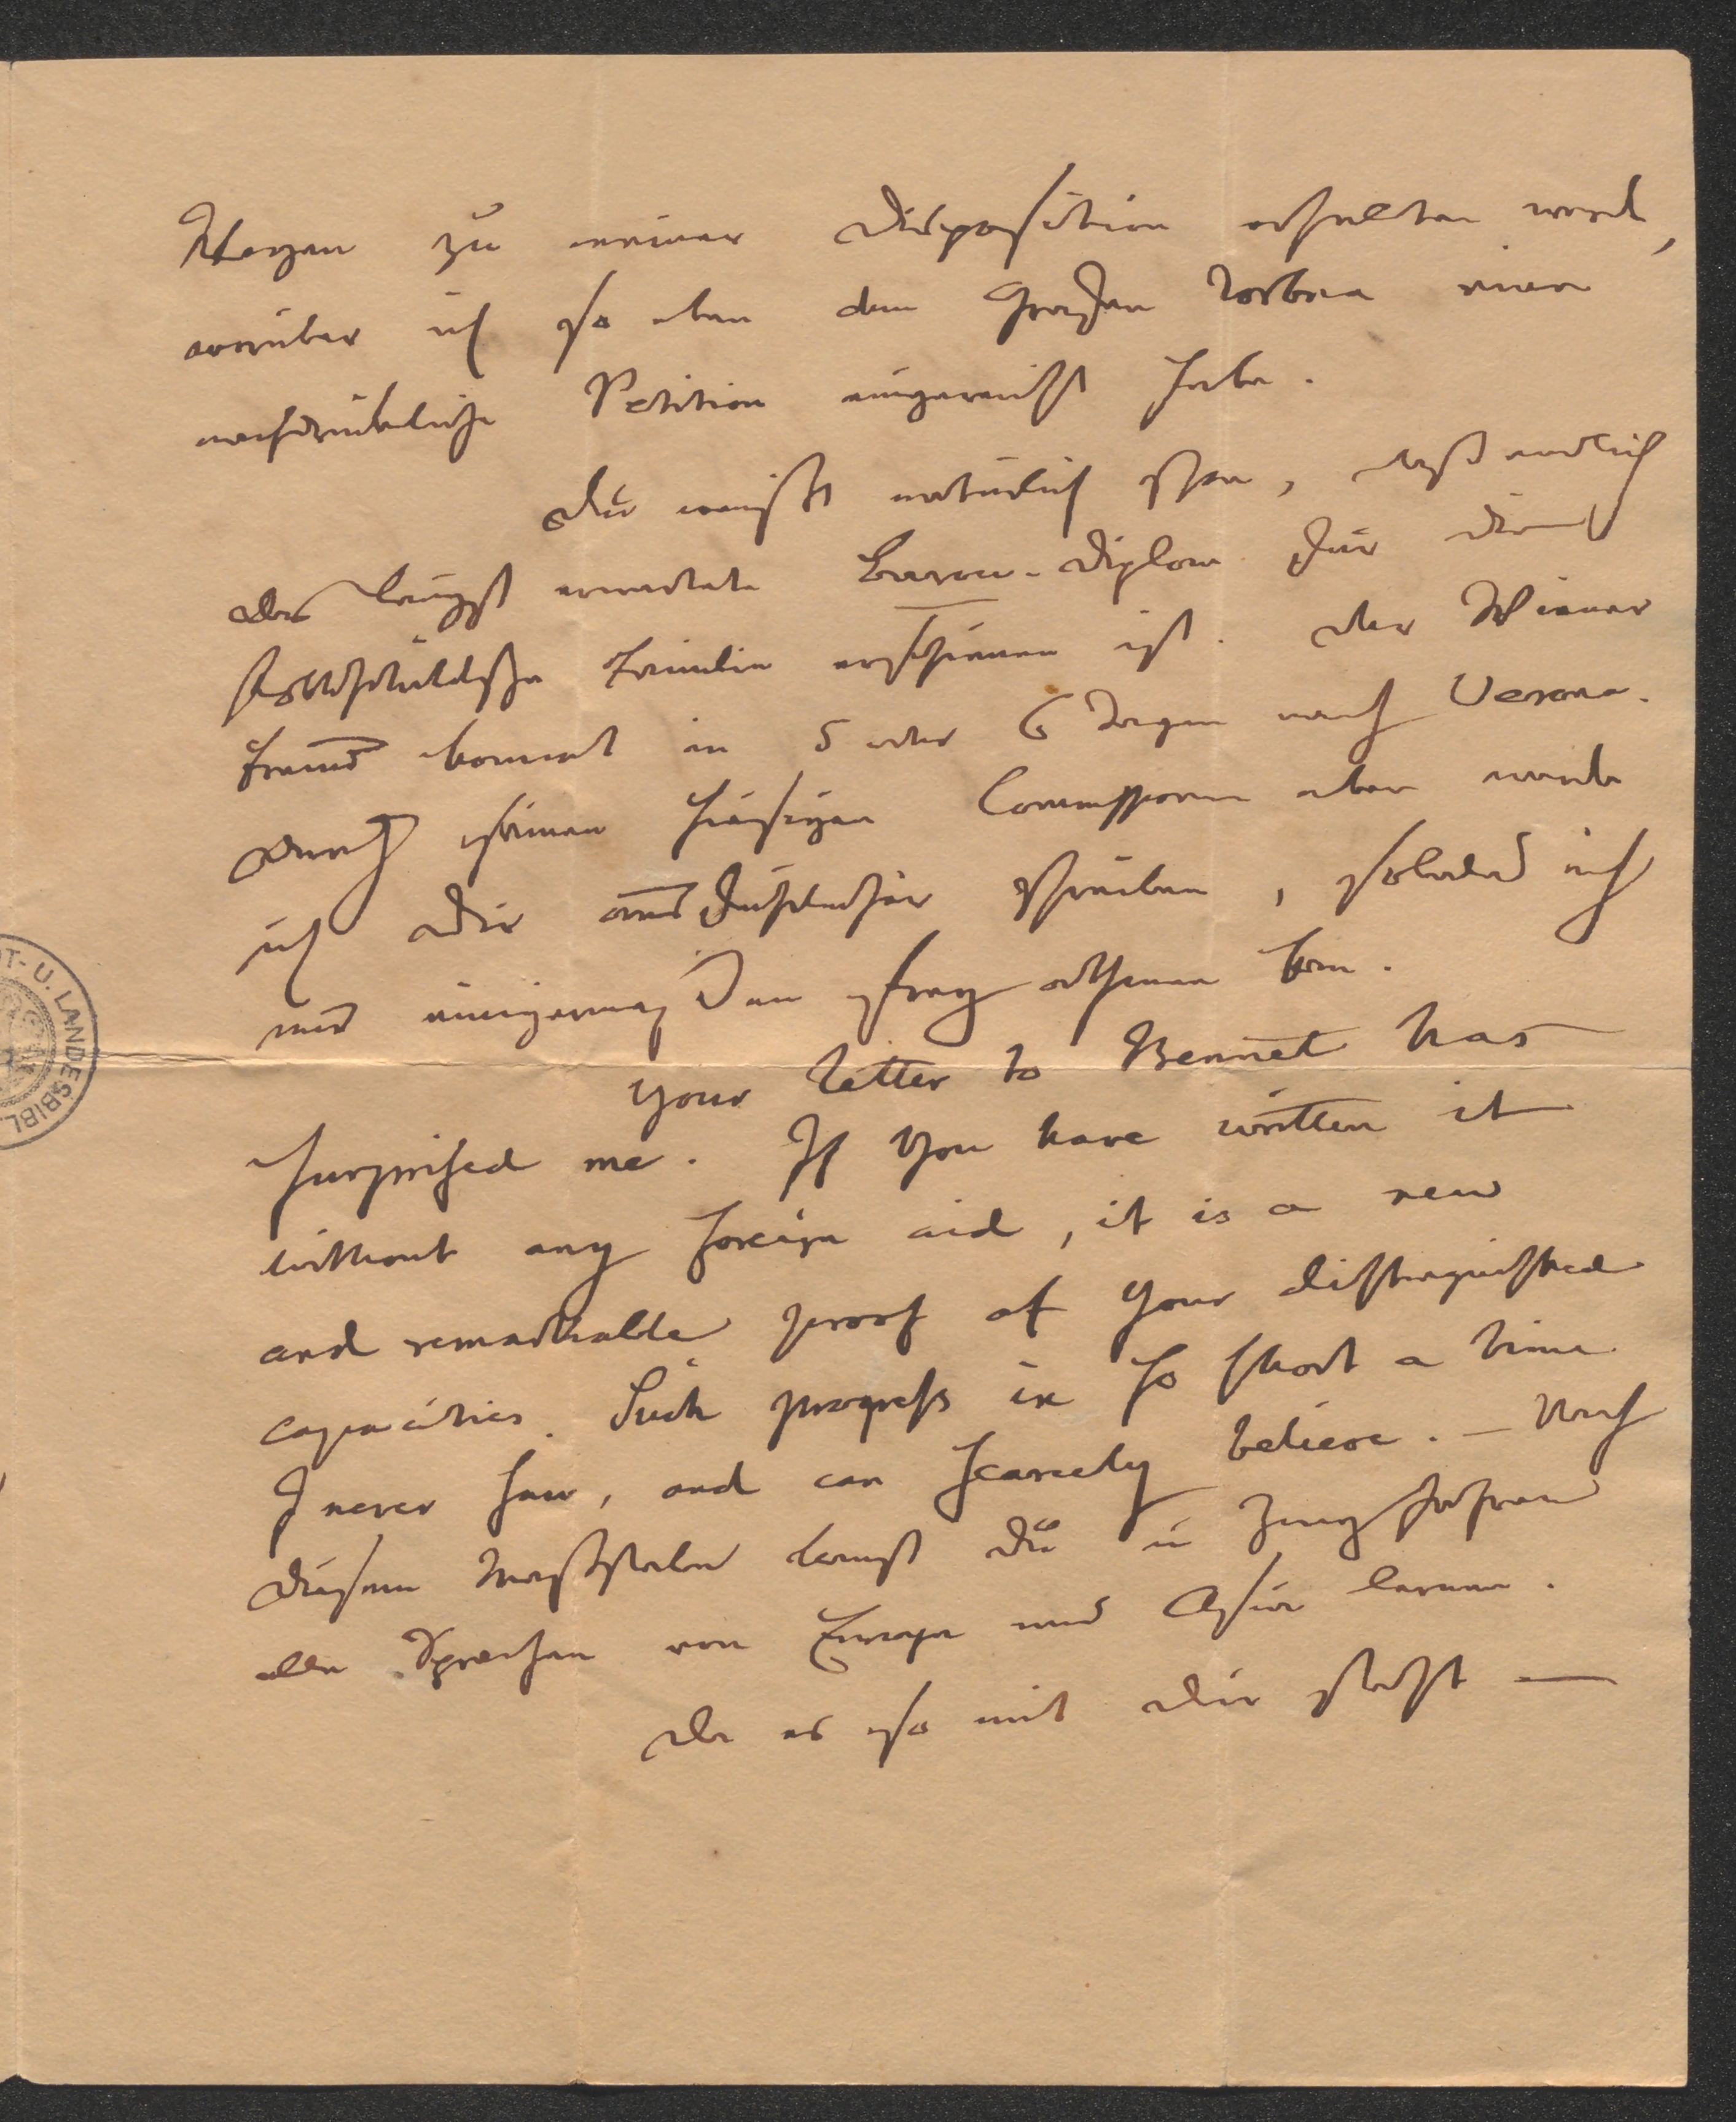 Wagen zu meiner Disposition erhalten werde,
worüber ich so eben dem Grafen Vorbna eine
nachdrückliche Petition eingereicht habe.
Du weißt natürlich schon, daß endlich
das längst erwartete Baron-Diplom für die
Rothschildische Familie erschienen ist. Der Wiener
Freund kommt in 5 oder 6 Tagen nach Verona.
Durch seinen hiesigen Commis aber werde
ich Dir ausführlicher schreiben, sobald ich
nur einigermaßen frey athmen kann.
Your letter to Bennet has
surprised me. If you have written it
without any foreign aid, it is a new
and remarkable proof of your distinguished
capacities. Such progress in so short a time
I never saw, and can scarcely believe. – Nach
diesem Maßstabe kannst Du in zwey Jahren
alle Sprachen von Europa und Asien lernen.
Da es so mit Dir steht —
T- U. LANDESBIBL